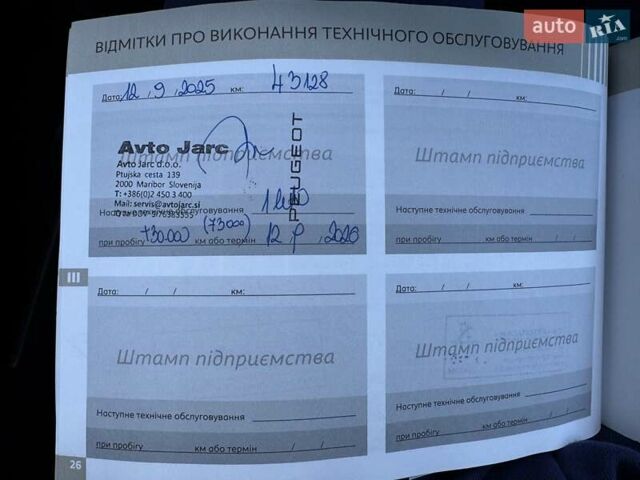 auto RIA.com
ВІДМІТКИ ПРО ВИКОНАННЯ ТЕХНІЧНОГО ОБСЛУГОВУВАННЯ
Дата: 12 / 9 / 2025 км: 43128
Штамп підприємства
Avto Jarc
Avto Jarc d.o.o.
Ptujska cesta 139
2000 Maribor Slovenija
T: +386(0)2 450 3 400
Mail: servis@avtojarc.si
PEUGEOT
Наступне технічне обслуговування
+30.000 (73000)
при пробігу км або термін 12 9 , 2026
Дата: / / км:
Штамп підприємства
Наступне технічне обслуговування
при пробігу км або термін / /
III
Дата: / / км:
Штамп підприємства
Наступне технічне обслуговування
при пробігу км або термін / /
Дата: / / км:
Штамп підприємства
Наступне технічне обслуговування
при пробігу км або термін / /
26